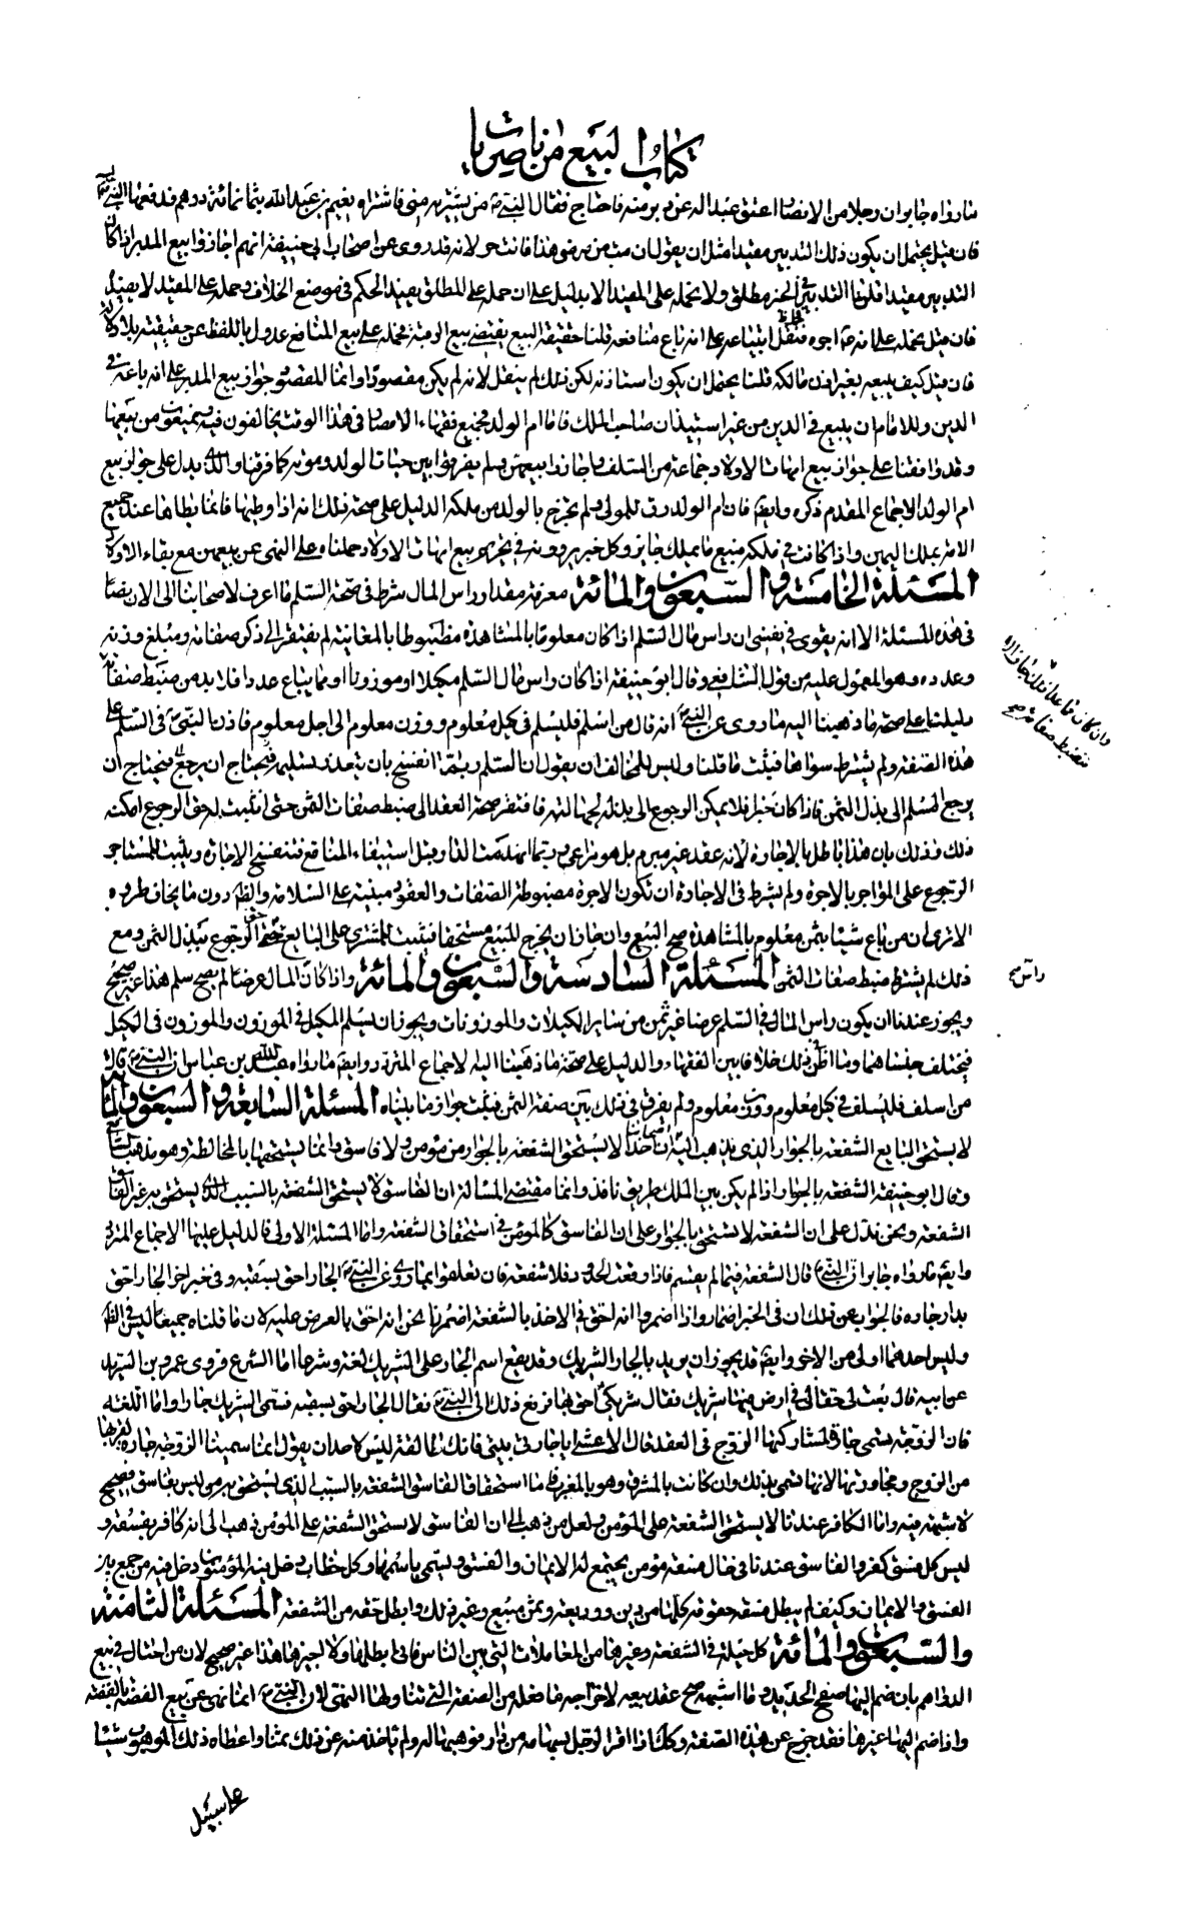 كتاب البيع من ناصريات
ما رواه جابر ان رجلا من الانصار اعتق عبدا له عن دبر منه فاحتاج فقال النبي من يشتريه مني فاشتراه نعيم بن عبد الله بثمانمائة درهم فدفعها اليه
فان قيل يحتمل ان يكون ذلك التدبير مقيدا مثل ان يقول ان مت من مرضي هذا فانت حر لانه قد روى عن اصحاب ابي حنيفة انهم اجازوا بيع المدبر اذا كان
التدبير مقيدا قلنا التدبير في الخبر مطلق ولا يحمله على المقيد الا بدليل على ان حمله على المطلق يفيد الحكم في موضع الخلاف وحمله على المقيد لا يفيد
فان قيل يحمله على انه اجره فنقل ابتياعه على انه باع منافعه قلنا حقيقة البيع يقتضي بيع الرقبة فحمله على بيع المنافع عدول باللفظ عن حقيقته بلا دلالة
فان قيل كيف يبيعه بغير اذن مالكه قلنا يحتمل ان يكون استاذنه لكن ذلك لم ينقل لانه لم يكن مقصودا وانما المقصود جواز بيع المدبر على انه باعه في
الدين وللامام ان يبيع في الدين من غير استيذان صاحب الملك فاما ام الولد فجميع فقهاء الامصار في هذا الوقت يخالفون فيه ويمنعون من بيعها
وقد وافقنا على جواز بيع امهات الاولاد جماعة من السلف واجازوا بيعهن ولم يفرقوا بين حيات الولد وموته كما فرقنا والذي يدل على جواز بيع
ام الولد الاجماع المقدم ذكره وايضا فان ام الولد رق للمولى ولم تخرج بالولد من ملكه الدليل على صحة ذلك انه اذا وطيها فانما يطاها عند جميع
الامة بملك اليمين واذا كانت في ملكه فبيع ما يملك جايز وكل خبر يروونه في تحريم بيع امهات الاولاد حملناه على النهي عن بيعهن مع بقاء الاولاد
المسئلة الخامسة والسبعون والمائة معرفة مقدار راس المال شرط في صحة السلم ما اعرف لاصحابنا الى الان نصا
في هذه المسئلة الا انه يقوى في نفسي ان راس مال السلم اذا كان معلوما بالمشاهدة مضبوطا بالمعاينة لم يفتقر الى ذكر صفاته ومبلغ وزنه
وعدده وهو المعول عليه من قول الشافعي وقال ابو حنيفة اذا كان راس مال السلم مكيلا او موزونا او مما يباع عددا فلا بد من ضبط صفاته
دليلنا على صحة ما ذهبنا اليه ما روى عن النبي انه قال من اسلم فليسلم في كيل معلوم ووزن معلوم الى اجل معلوم فاذن النبي في السلم على
هذه الصفة ولم يشترط سواها فثبت ما قلنا وليس للمخالف ان يقول ان السلم ربما انفسخ بان يتعذر تسليمه فيحتاج ان يرجع فيحتاج ان
يرجع المسلم الى بذل الثمن فاذا كان جزافا فلا يمكن الرجوع الى بذله لجهالته فافتقر صحة العقد الى ضبط صفات الثمن حتى اذا ثبت له حق الرجوع امكنه
ذلك وذلك بان هذا باطل بالاجارة لانه عقد غير مبرم بل هو مراعى وربما انهدمت الدار قبل استيفاء المنافع فتنفسخ الاجارة ويثبت للمستاجر
الرجوع على المواجر بالاجرة ولم يشرط في الاجارة ان تكون الاجرة مضبوطة الصفات والعقود مبنية على السلامة والظاهر دون ما يخاف طروه
الا ترى ان من باع شيئا بثمن معلوم بالمشاهدة صح البيع وان جاز ان يخرج المبيع مستحقا فيثبت للمشتري على البايع حق الرجوع ببذل الثمن ومع
ذلك لم يشترط ضبط صفات الثمن المسئلة السادسة والسبعون والمائة واذا كان المال عرضا لم يصح سلم هذا غير صحيح
ويجوز عندنا ان يكون راس المال في السلم عرضا غير ثمن من ساير المكيلات والموزونات ويجوز ان يسلم المكيل في الموزون والموزون في المكيل
فيختلف جنساهما وما اظن في ذلك خلافا بين الفقهاء والدليل على صحة ما ذهبنا اليه الاجماع المتردد وايضا ما رواه عبد الله بن عباس ان النبي قال
من اسلف فليسلف في كيل معلوم ووزن معلوم ولم يفرق في ذلك بين صفة الثمن فثبت جواز ما بيناه المسئلة السابعة والسبعون والمائة
لا يستحق البايع الشفعة بالجوار الذي يذهب اليه اصحابنا ان احدا لا يستحق الشفعة بالجوار من مؤمن ولا فاسق وانما يستحقها بالمخالطة وهو مذهب الشافعي
وقال ابو حنيفة الشفعة بالجوار اذا لم يكن بين الملك طريق نافذ وانما مقتضى المسالة ان الفاسق لا يستحق الشفعة بالسبب الذي يستحق به غير الفاسق
الشفعة ونحن ندل على ان الشفعة لا يستحق بالجوار وعلى ان الفاسق كالمؤمن في استحقاق الشفعة واما المسئلة الاولى فالدليل عليها الاجماع المتردد
وايضا ما رواه جابر ان النبي قال الشفعة فيما لم يقسم فاذا وقعت الحدود فلا شفعة فان تعلقوا بما روى عن النبي الجار احق بسقبه وفي خبر اخر الجار احق
بدار جاره فالجواب عن ذلك ان في الخبر اضمار واذا اضمروا انه احق في الاخذ بالشفعة اضمرنا نحن انه احق بالعرض عليه لان ما قلناه جميعا ليس في الظاهر
وليس احدهما اولى من الاخر وايضا قد يجوز ان يريد بالجار الشريك وقد يقع اسم الجار على الشريك لغة وشرعا اما الشرع فروى عمرو بن الشريد
عن ابيه قال بعت لي حقا لي في ارض فيها شريك فقال شريكي احق بها فرفع ذلك الى النبي فقال الجار احق بسقبه فسمى الشريك جارا واما اللغة
فان الزوجة يسمى جارة لمشاركتها الزوج في العقد قال الاعشى ايا جارتي بيني فانك طالقة ليس لاحد ان يقول انما سميت الزوجة جارة لقربها
من الزوج ومجاورتها لانها تسمى بذلك وان كانت بالمشرق وهو بالمغرب فاما استحقاق الفاسق الشفعة بالسبب الذي يستحق به من ليس بفاسق فصحيح
لا شبهة فيه وانما الكافر عندنا لا يستحق الشفعة على المؤمن ولعل من ذهب الى ان الفاسق لا يستحق الشفعة على المؤمن ذهب الى انه كافر بفسقه و
ليس كل فسق كفر والفاسق عندنا في حال فسقه مؤمن يجتمع له الايمان والفسق ويسمى باسمهما وكل خطاب دخل فيه المؤمنون دخل فيه من جمع بين
الفسق والايمان وكيف لم يبطل فسقه حقوقه كلها من دين ووديعة وثمن مبيع وغير ذلك وابطل حقه من الشفعة المسئلة الثامنة
والسبعون والمائة كل حيلة في الشفعة وغيرها من المعاملات التي بين الناس فاني ابطلها ولا اجيزها هذا غير صحيح لان من احتال في بيع
الدراهم بان ضم اليها صفح الحديد وما اشبهه صح عقد بيعه لاخراجه ما فعله من الصفة التي تناولها النهي لان النبي انما نهى عن بيع الفضة بالفضة
واذا ضم اليها غيرها فقد خرج عن هذه الصفة وكذلك اذا اقر الرجل بسهامه من دار فوهبها له ولم ياخذ منه عن ذلك ثمنا واعطاه ذلك الموهوب شيئا
على سبيل
راس صح